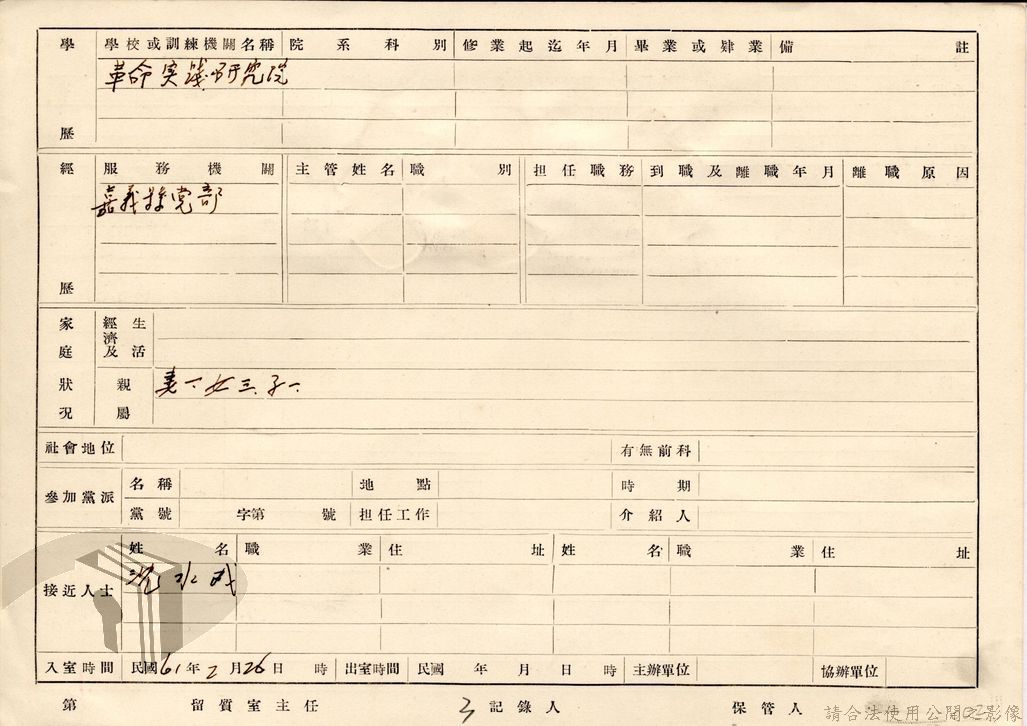 學歷 學校或訓練機關名稱 院系科別 修業起迄年月 畢業或肄業 備註
革命实践研究院
經歷 服務機關 主管姓名 職別 担任職務 到職及離職年月 離職原因
嘉義縣党部
家庭狀況 經濟及生活
親屬 妻一女三子一
社會地位 有無前科
參加黨派 名稱 地點 時期
黨號 字第 號 担任工作 介紹人
接近人士 姓名 職業 住址 姓名 職業 住址
水
入室時間 民國61年2月26日 時 出室時間 民國 年 月 日 時 主辦單位 協辦單位
第 留質室主任 記錄人 保管人
請合法使用公開影像